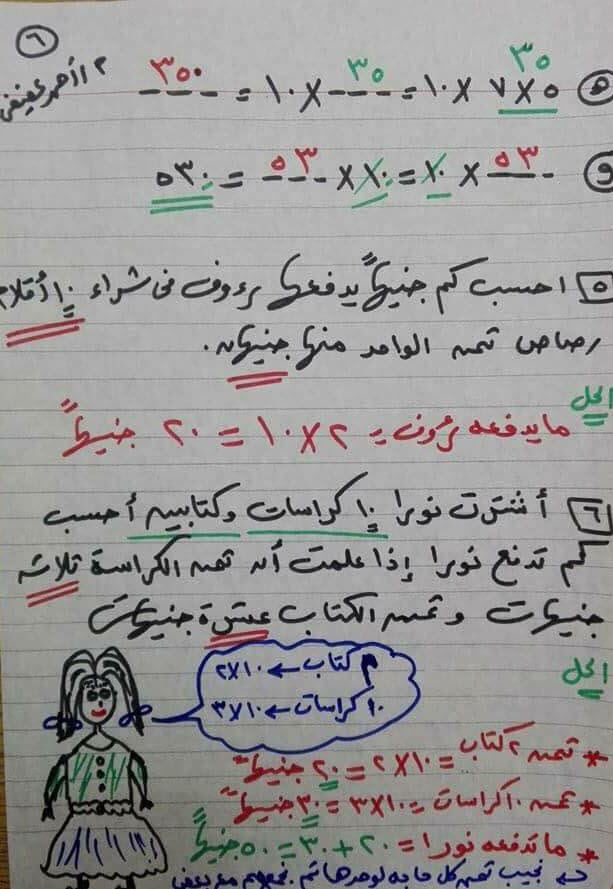 ٦
٣٥
٣٥
٣٥٠
هـ ٥ × ٧ × ١٠ = --- × ١٠ = ---
أ / أحمد عفيفي
٥٣
٥٣
و --- × ١٠ = ١٠ × --- = ٥٣٠
٥ احسب كم جنيهاً يدفعها رءوف فى شراء ١٠ أقلام
رصاص ثمن الواحد منها جنيهان .
الحل
ما يدفعه رءوف = ٢ × ١٠ = ٢٠ جنيهاً
٦ أشترت نورا ١٠ كراسات وكتابين أحسب
كم تدفع نورا إذا علمت أن ثمن الكراسة ثلاثة
جنيهات و ثمن الكتاب عشرة جنيهات
الحل
٢ كتاب ← ١٠ × ٢
١٠ كراسات ← ١٠ × ٣
* ثمن ٢ كتاب = ١٠ × ٢ = ٢٠ جنيهاً
* ثمن ١٠ كراسات = ١٠ × ٣ = ٣٠ جنيهاً
* ما تدفعه نورا = ٢٠ + ٣٠ = ٥٠ جنيهاً
نجيب ثمن كل حاجه لوحدها ثم نجمعهم مع بعض